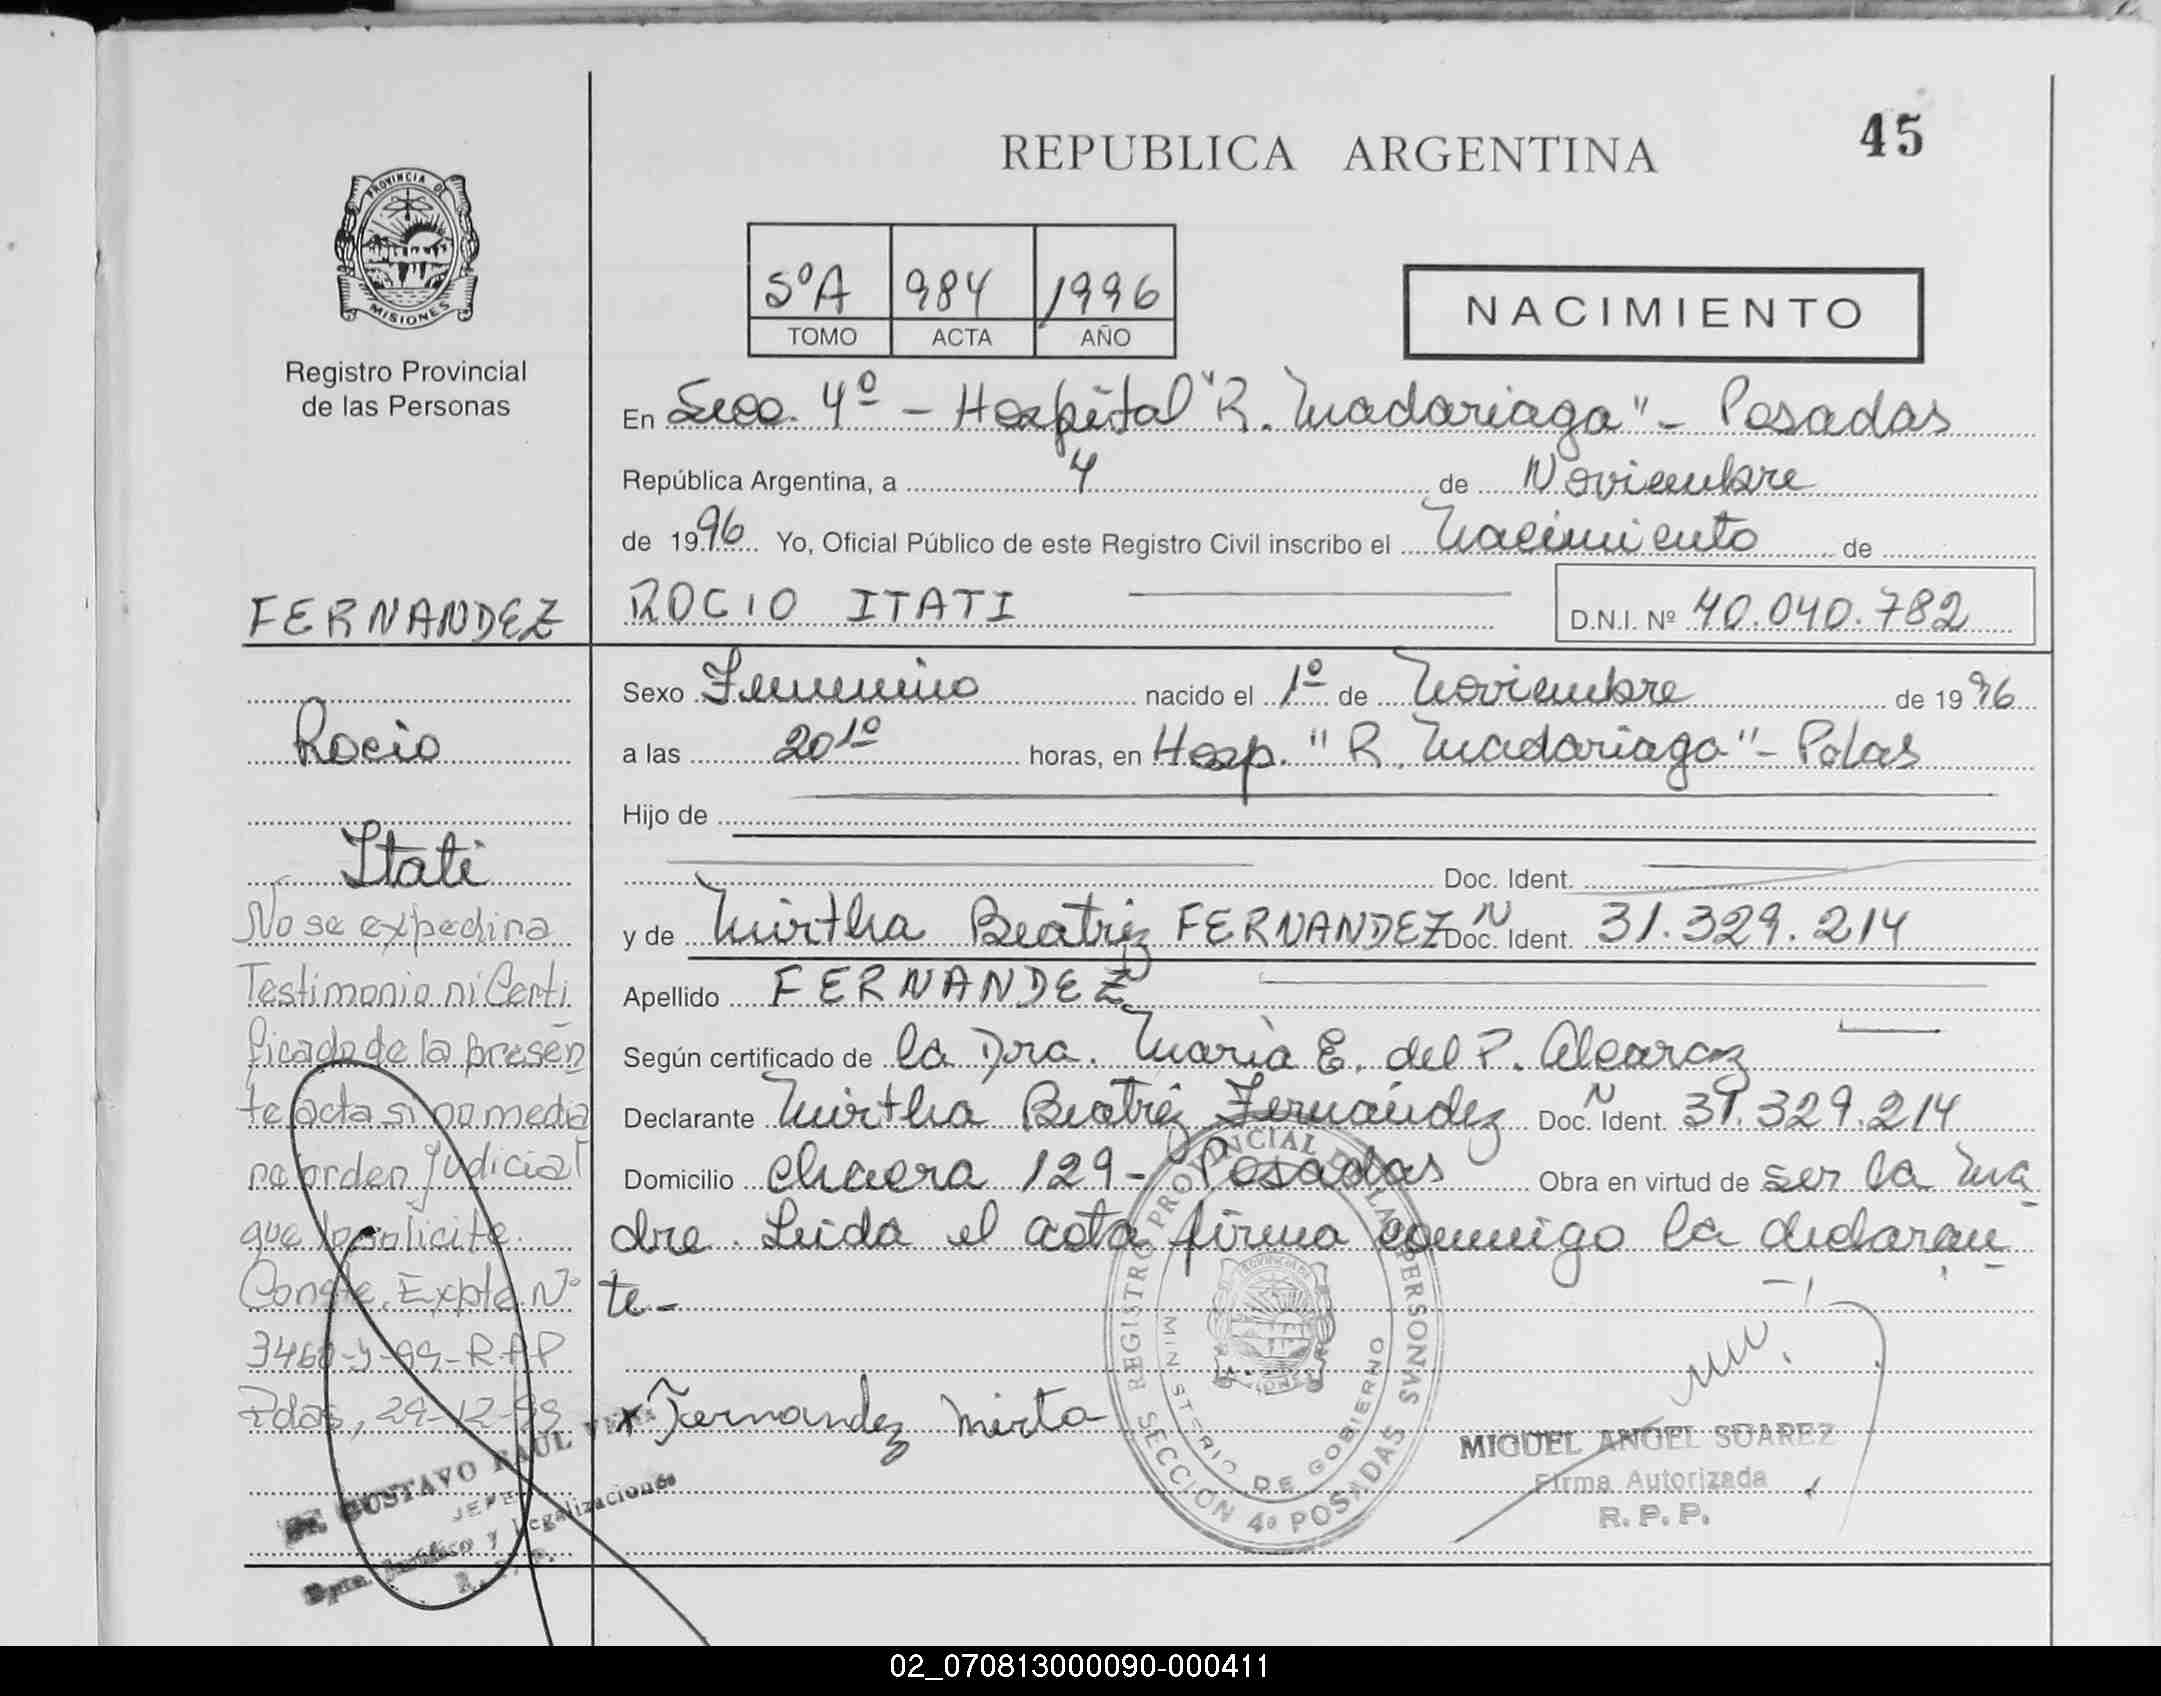 45
REPUBLICA ARGENTINA
PROVINCIA DE
MISIONES
Registro Provincial
de las Personas
5ºA 984 1996
TOMO ACTA AÑO
NACIMIENTO
En Secc. 4º - Hospital "R. Madariaga" - Posadas
República Argentina, a 4 de Noviembre
de 1996 Yo, Oficial Público de este Registro Civil inscribo el Nacimiento de
ROCIO ITATI
D.N.I. Nº 40.040.782
Sexo Femenino nacido el 1º de Noviembre de 1996
a las 20 1º horas, en Hosp. "R. Madariaga" - Pdas
Hijo de
Doc. Ident.
y de Mirtha Beatriz FERNANDEZ Doc. N Ident. 31.329.214
Apellido FERNANDEZ
Según certificado de la Dra. Maria E. del P. Alcaraz
Declarante Mirtha Beatriz Fernández Doc. N Ident. 31.329.214
Domicilio Chacra 129 - Posadas Obra en virtud de ser la ma
dre. Leida el acta firma conmigo la declaran
te -
x Fernandez Mirta
REGISTRO PROVINCIAL DE LAS PERSONAS
MINISTERIO DE GOBIERNO
SECCION 4ª POSADAS
MIGUEL ANGEL SUAREZ
Firma Autorizada
R. P. P.
FERNANDEZ
Rocio
Itati
No se expedira
Testimonio ni Certi
ficado de la presen
te acta si no media
ra orden Judicial
que lo solicite.
Conste. Expte. Nº
Pdas, 29-12-99
GUSTAVO RAUL
JEFE
Dpto. Jurídico y Legalizaciones
02_070813000090-000411